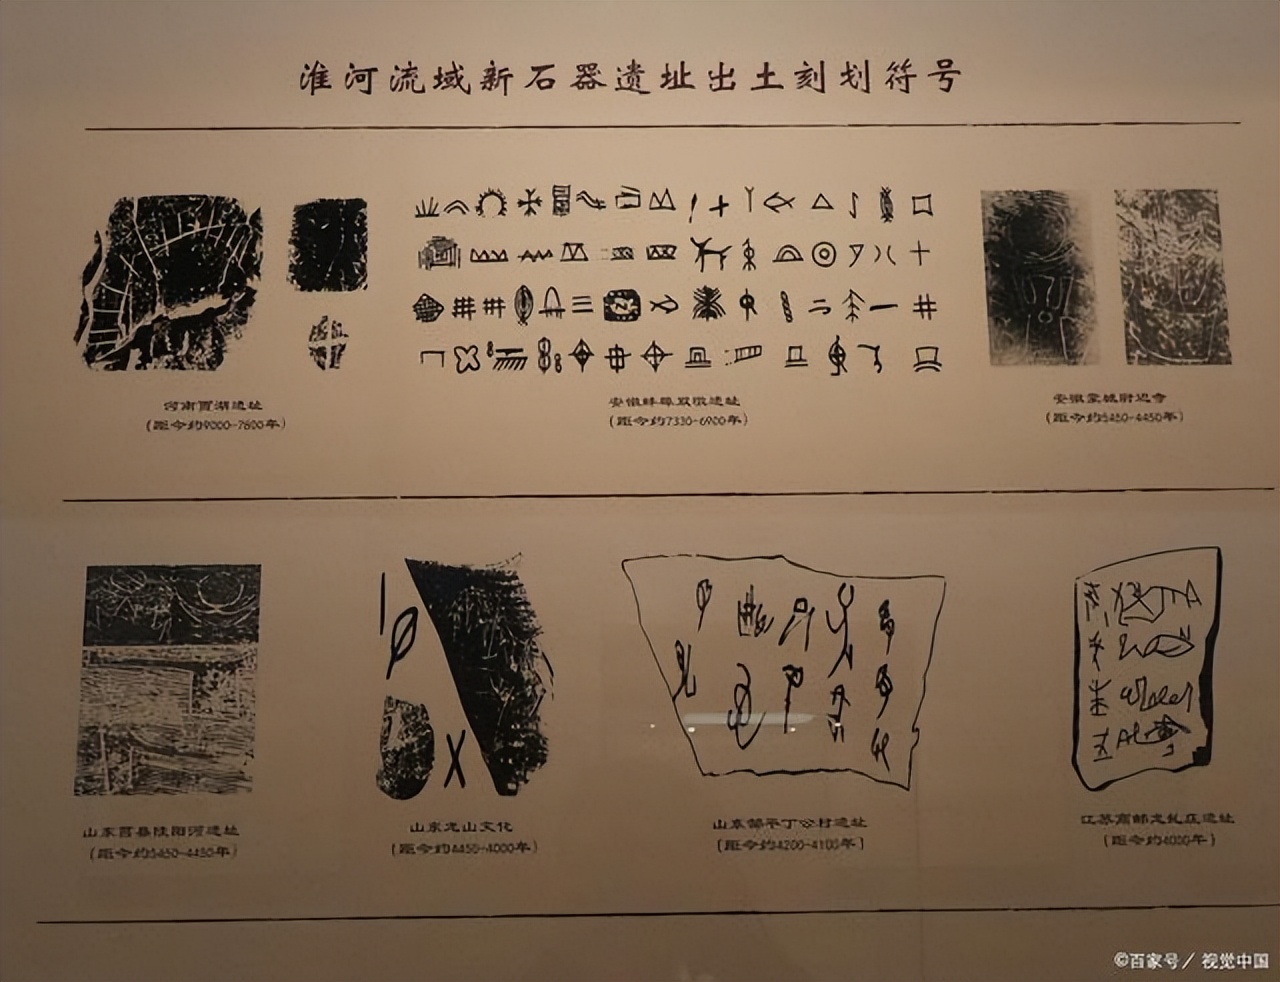 淮河流域新石器遗址出土刻划符号
河南贾湖遗址
(距今约9000-7800年)
安徽蚌埠双墩遗址
(距今约7330-6900年)
安徽蒙城尉迟寺
(距今约5450-4450年)
山东莒县陵阳河遗址
(距今约5450-4450年)
山东龙山文化
(距今约4450-4000年)
山东邹平丁公村遗址
(距今约4200-4100年)
江苏高邮龙虬庄遗址
(距今约4000年)
©百家号/视觉中国